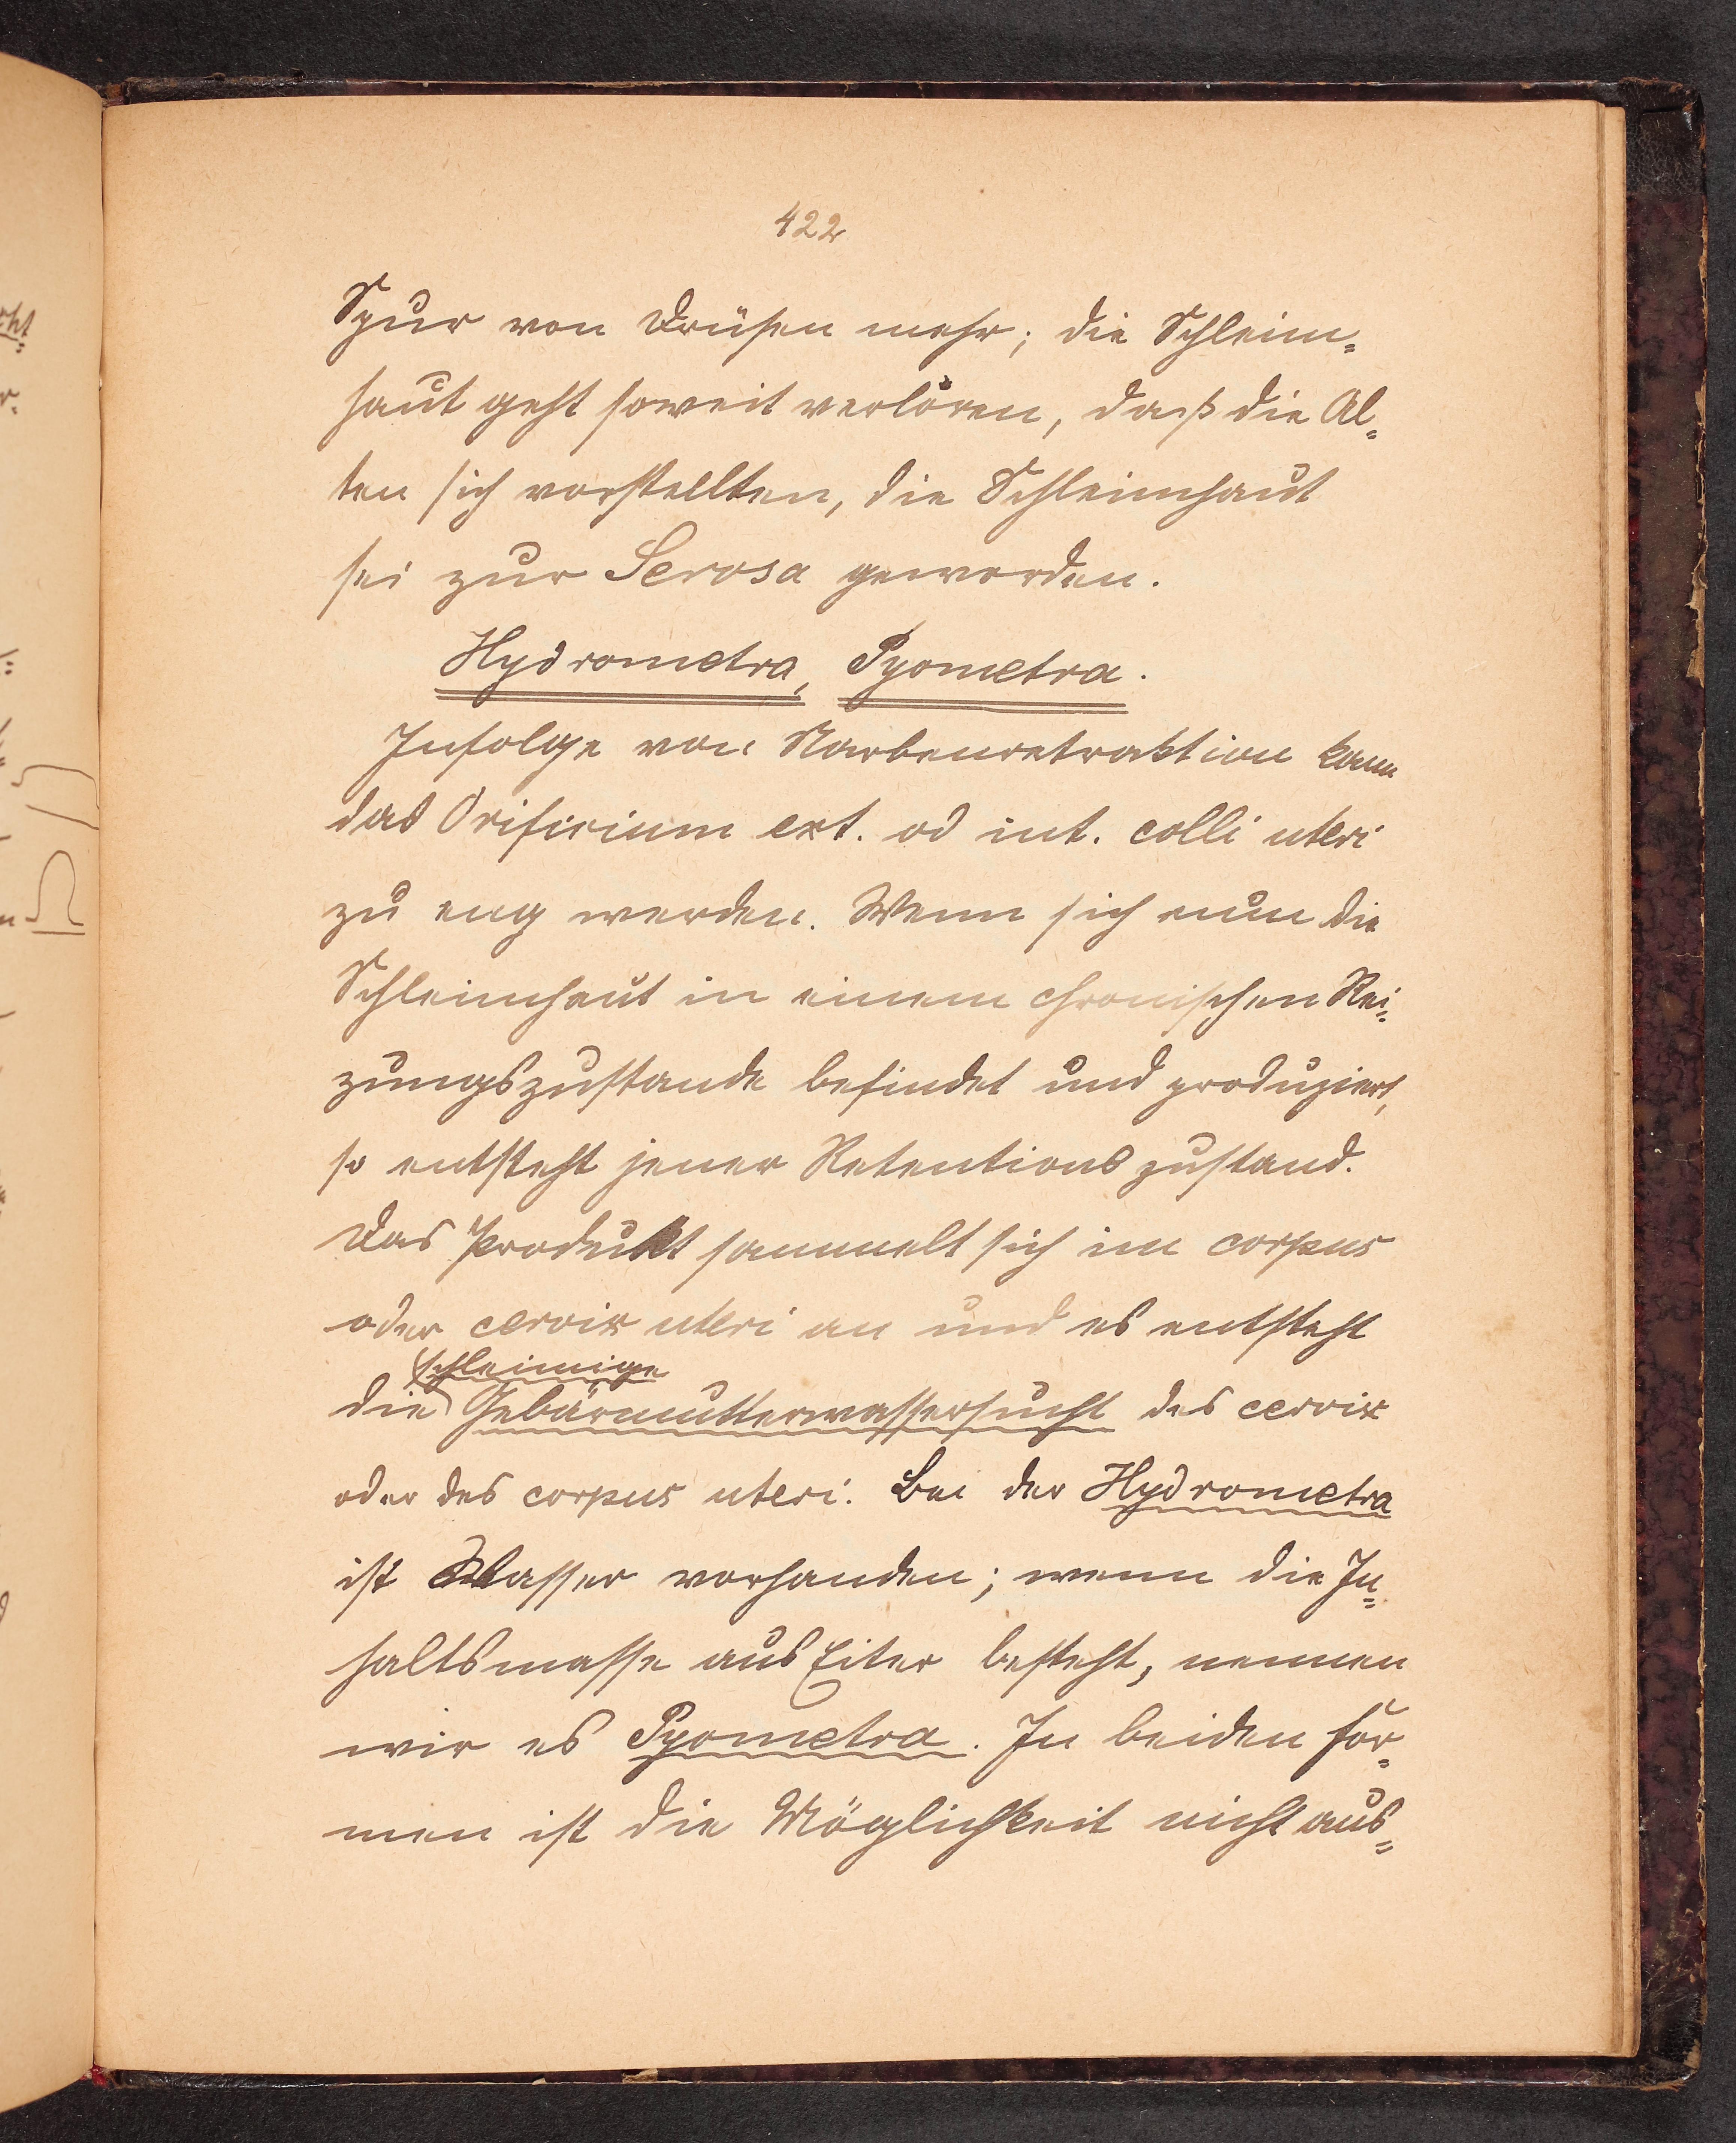 422
Spur von Drüsen mehr; die Schleim-
haut geht soweit verloren, daß die Al-
ten sich vorstellten, die Schleimhaut
sei zur Serosa geworden.
Hydrometra, Pyometra.
Infolge von Narbenretraktion kann
das Orificium ext. od int. colli uteri
zu eng werden. Wenn sich nun die
Schleimhaut in einem chronischen Rei-
zungszustande befindet und produziert,
so entsteht jener Retentionszustand.
Das Produkt sammelt sich im corpus
oder cervix uteri an und es entsteht
schleimige
die Gebärmutterwassersucht des cervix
oder des corpus uteri. Bei der Hydrometra
ist Wasser vorhanden; wenn die In-
haltsmasse aus Eiter besteht, nennen
wir es Pyometra. In beiden For-
men ist die Möglichkeit nicht aus-